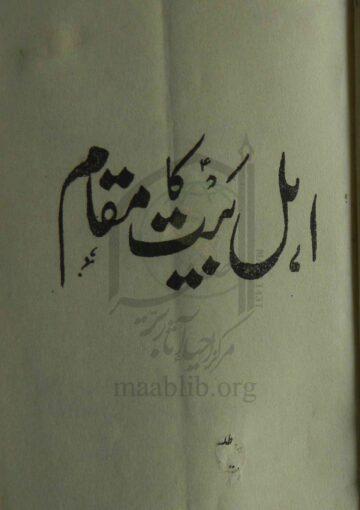 اہل بیت کا مقام
مرکز احیاء آثار برصغیر
maablib.org